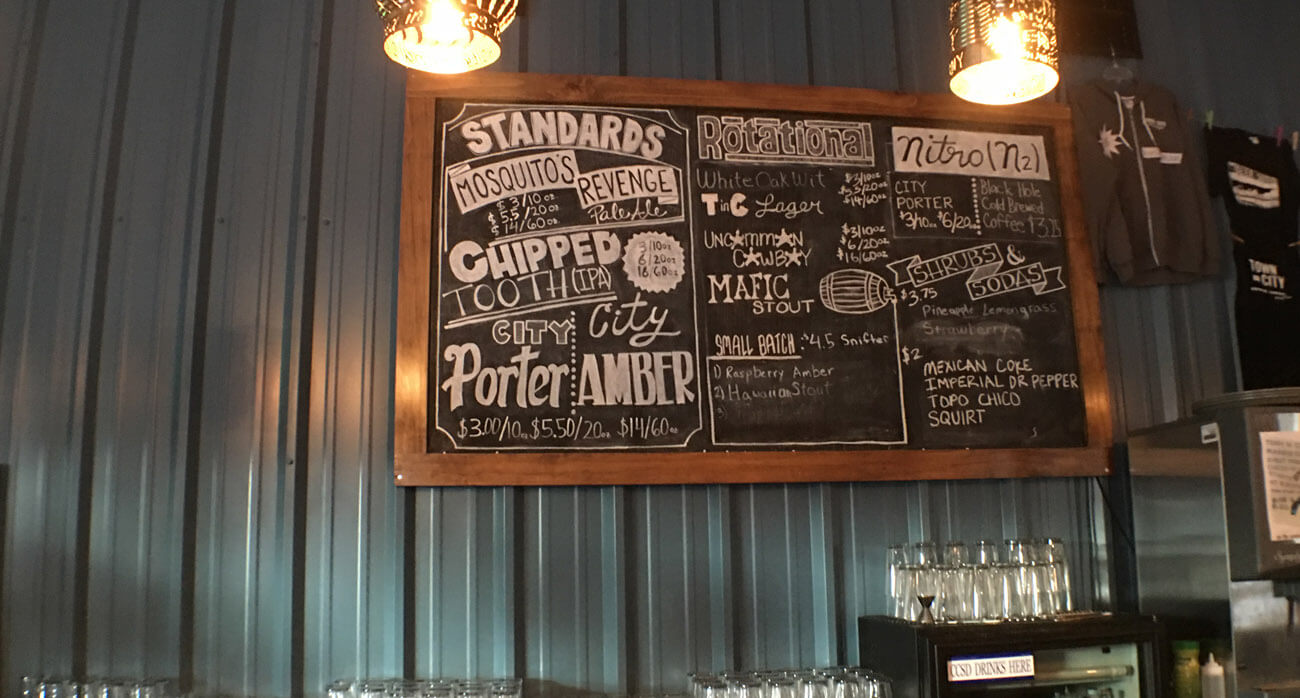 STANDARDS
MOSQUITO'S
REVENGE
Pale Ale
$3/10oz
$5.5/20oz
$14/60oz
CHIPPED
TOOTH (IPA)
3/10oz
6/20oz
16/60oz
CITY
Porter
City
AMBER
$3.00/10oz $5.50/20oz $14/60oz
Rotational
White Oak Wit
T in C Lager
$3/10oz
$5.5/20oz
$14/60oz
UNCOMMON
COWBOY
$3/10oz
$6/20oz
$16/60oz
MAFIC
STOUT
SMALL BATCH $4.5 Snifter
1) Raspberry Amber
2) Hawaiian Stout
3)
Nitro (N2)
CITY
PORTER
$3/10oz $6/20oz
Black Hole
Cold Brewed
Coffee
SHRUBS &
SODAS
$3.75
Pineapple Lemongrass
Strawberry
$2
MEXICAN COKE
IMPERIAL DR PEPPER
TOPO CHICO
SQUIRT
TOWN
IN
CITY
CCSD DRINKS HERE